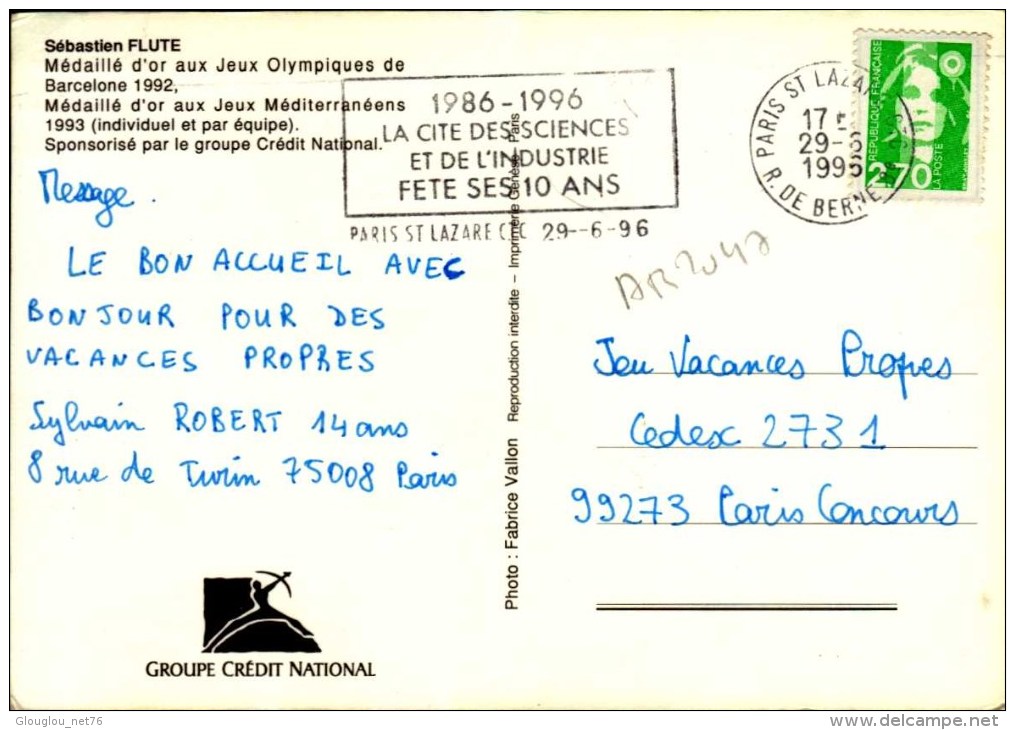 Sébastien FLUTE
Médaillé d'or aux Jeux Olympiques de
Barcelone 1992,
Médaillé d'or aux Jeux Méditerranéens
1993 (individuel et par équipe).
Sponsorisé par le groupe Crédit National.
1986-1996
LA CITE DES SCIENCES
ET DE L'INDUSTRIE
FETE SES 10 ANS
PARIS ST LAZARE CTC 29-6-96
PARIS ST LAZARE
17
29-6
1996
R. DE BERNE
REPUBLIQUE FRANÇAISE
LA POSTE
2,70
Message.
LE BON ACCUEIL AVEC
BONJOUR POUR DES
VACANCES PROPRES
Sylvain ROBERT 14 ans
8 rue de Turin 75008 Paris
GROUPE CRÉDIT NATIONAL
Photo : Fabrice Vallon Reproduction interdite – Imprimerie Genèse, Paris
Jeu Vacances Propes
Cedex 2731
99273 Paris Concours
Glouglou_net76
www.delcampe.net